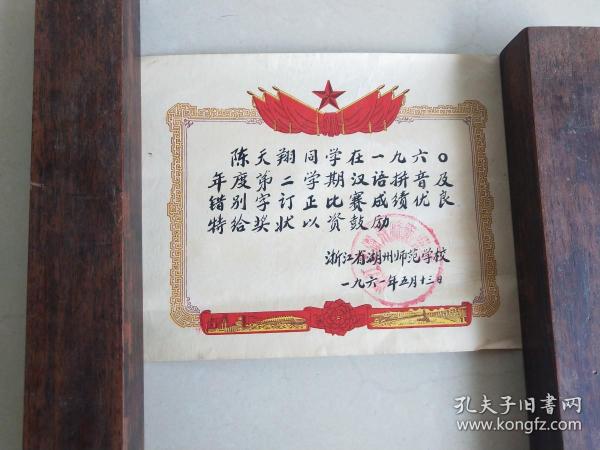 陈天翔同学在一九六〇
年度第二学期汉语拼音及
错别字订正比赛成绩优良
特给奖状以资鼓励
浙江省湖州师范学校
一九六一年五月十三日
孔夫子旧书网
www.kongfz.com